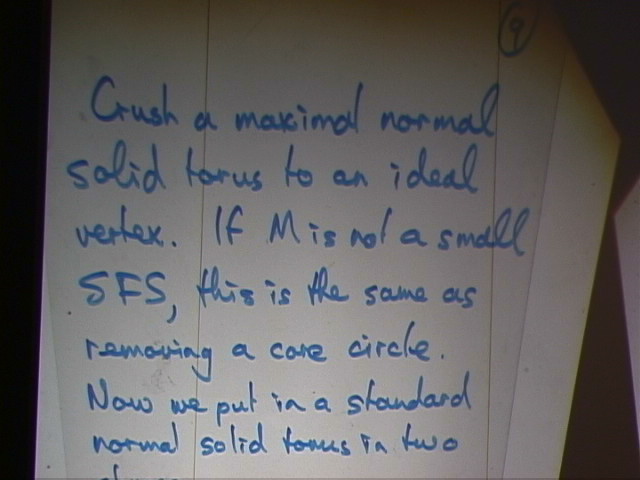 9
Crush a maximal normal
solid torus to an ideal
vertex. If M is not a small
SFS, this is the same as
removing a core circle.
Now we put in a standard
normal solid torus in two